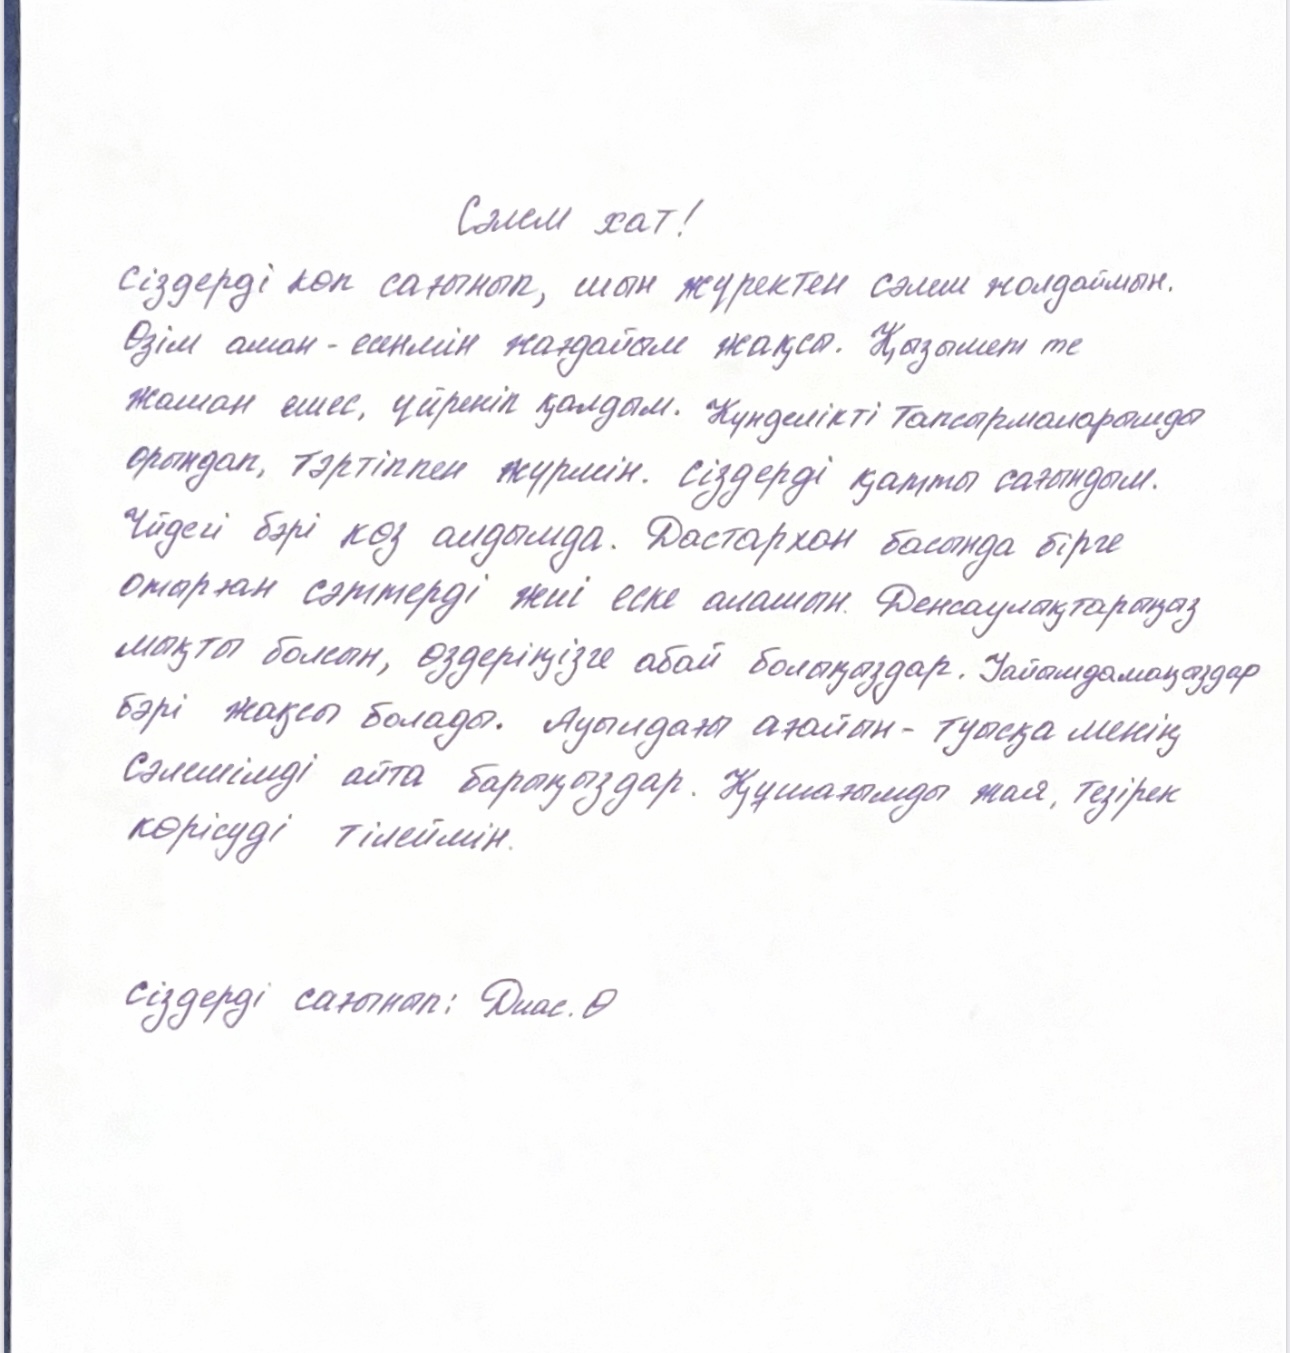 Сәлем хат!
Сіздерді көп сағынып, шын жүректен сәлем жолдаймын.
Өзім аман - есенмін жағдайым жақсы. Қызымет те
жаман емес, үйреніп қалдым. Күнделікті тапсырмаларымды
орындап, тәртіппен жүрмін. Сіздерді қатты сағындым.
Үйдегі бәрі көз алдымда. Дастархан басында бірге
отырған сәттерді жиі еске аламын. Денсаулықтарыңыз
мықты болсын, өздеріңізге абай болыңыздар. Уайымдамаңыздар
бәрі жақсы болады. Ауылдағы ағайын - туысқа менің
сәлемімді айта барыңыздар. Құшағымды жая, тезірек
көрісуді тілеймін.
Сіздерді сағынып: Диас. Ө